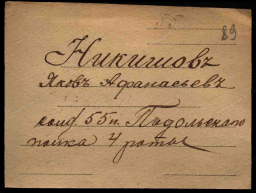 89
Никишовъ
Яковъ Афанасьевъ
солд 55 п. Подольскаго
полка 4 роты